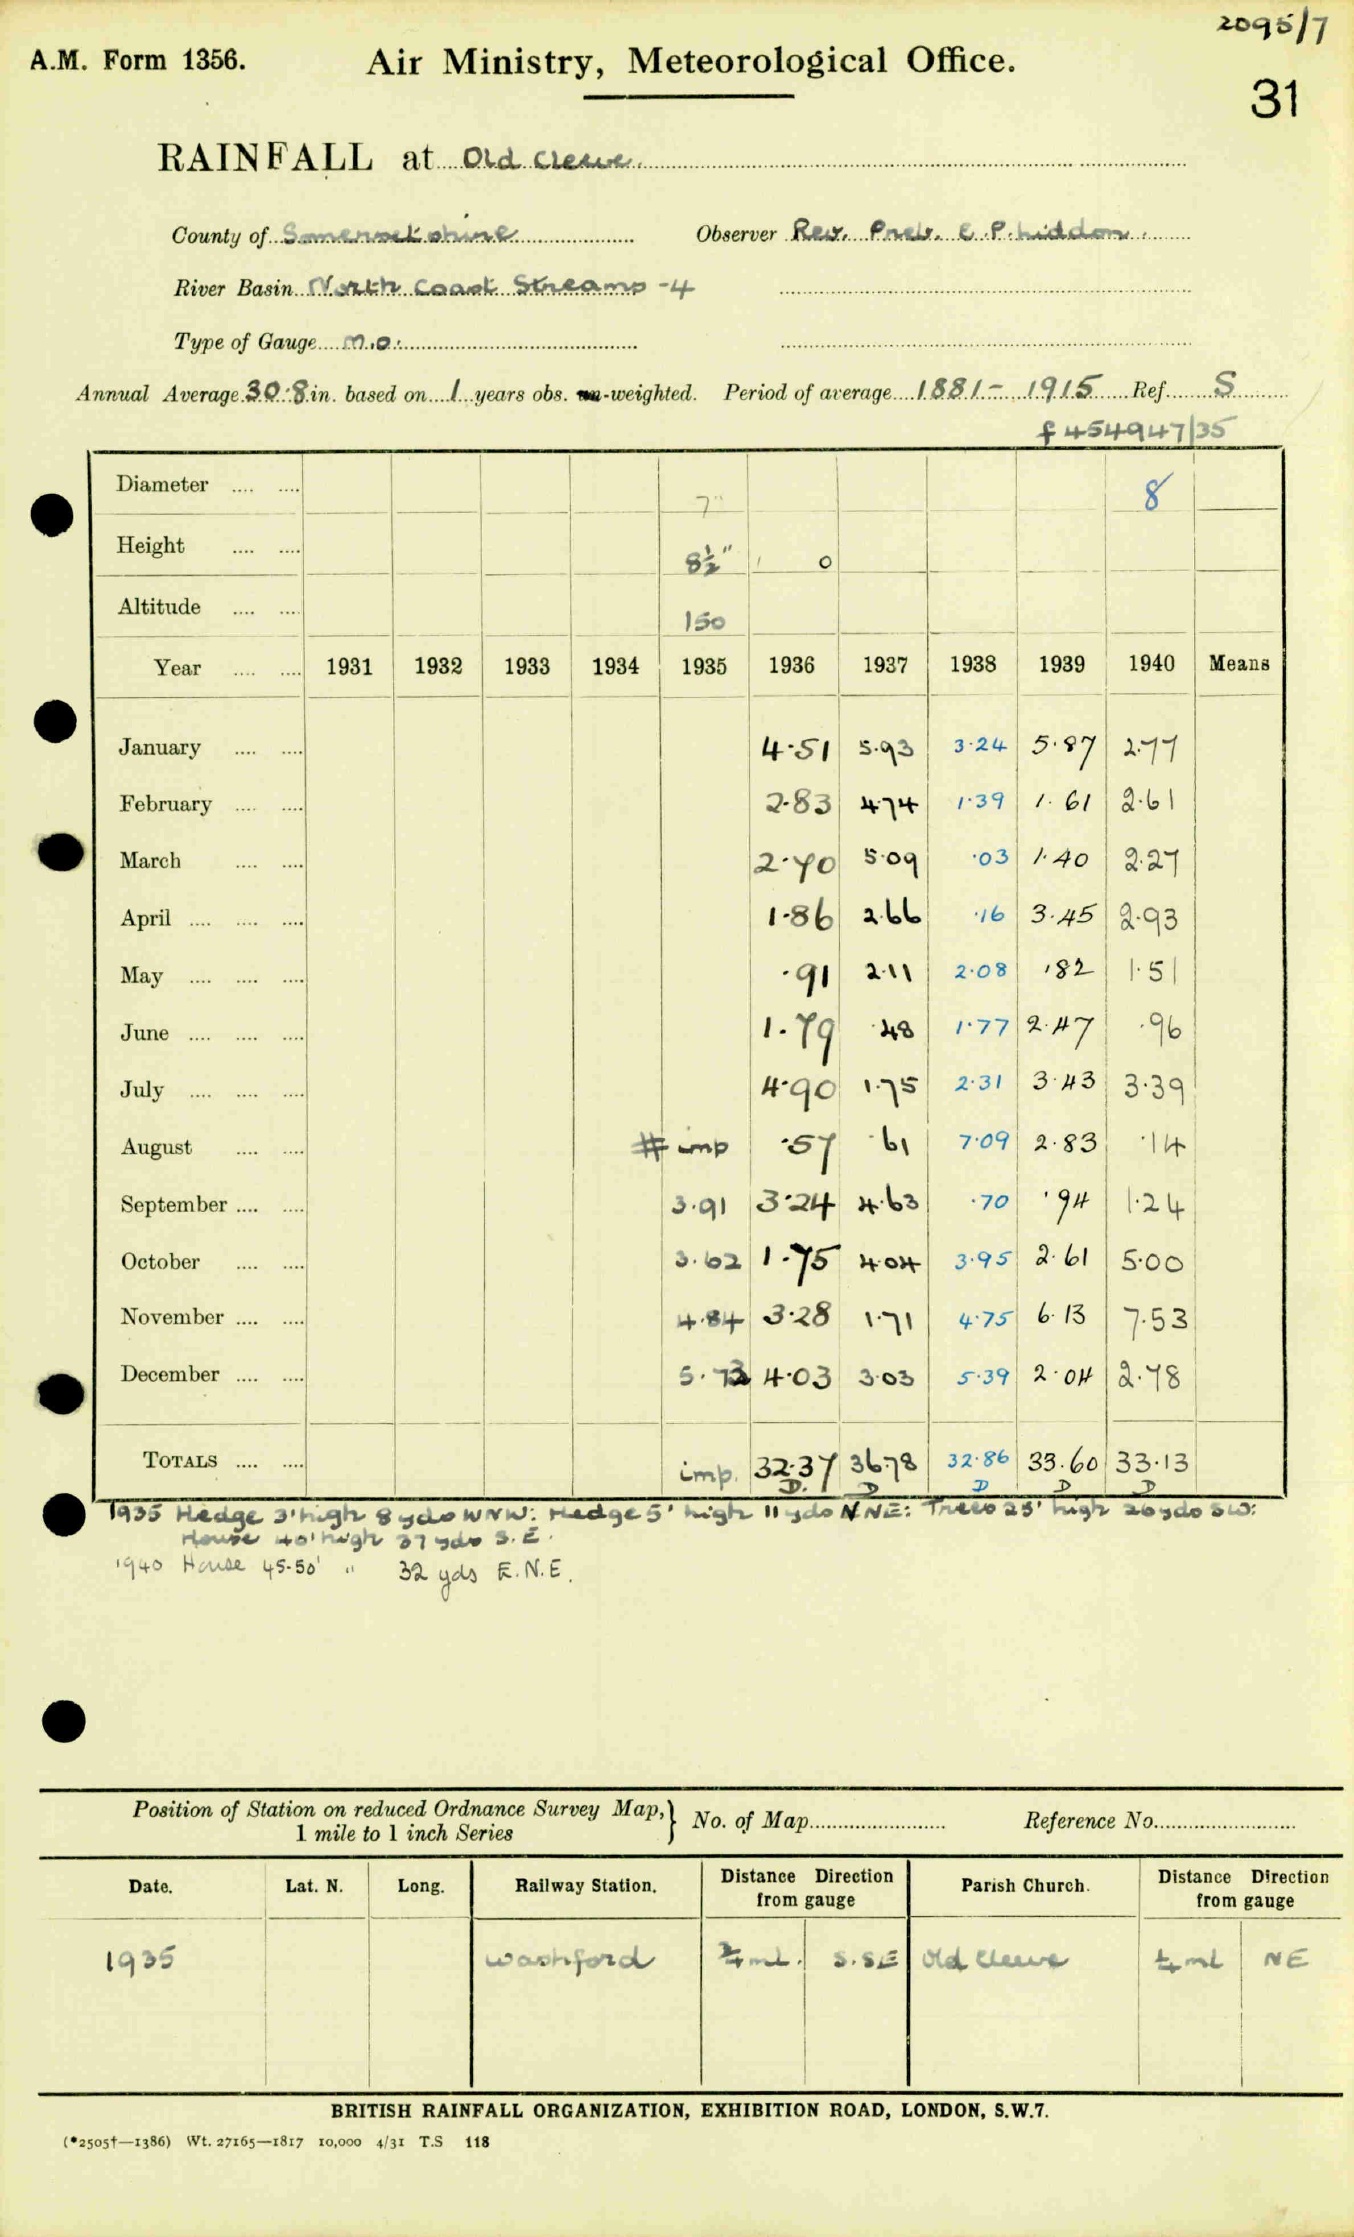 2095/7
A.M. Form 1356. Air Ministry, Meteorological Office.
31
RAINFALL at Old Cleeve
County of Somersetshire Observer Rev. Preb. E. P. Liddon.
River Basin North Coast Streams -4
Type of Gauge M.O.
Annual Average 30.8 in. based on 1 years obs. -weighted. Period of average 1881 - 1915 Ref. S
f 454947/35
Diameter .... .... 7" 8
Height .... .... 8½" 0
Altitude .... .... 150
Year .... .... 1931 1932 1933 1934 1935 1936 1937 1938 1939 1940 Means
January .... .... 4.51 5.93 3.24 5.87 2.77
February .... .... 2.83 4.74 1.39 1.61 2.61
March .... .... 2.70 5.09 .03 1.40 2.27
April .... .... .... 1.86 2.66 .16 3.45 2.93
May .... .... .... .91 2.11 2.08 .82 1.51
June .... .... .... 1.79 .48 1.77 2.47 .96
July .... .... .... 4.90 1.75 2.31 3.43 3.39
August .... .... # imp .57 .61 7.09 2.83 .14
September .... .... 3.91 3.24 4.63 .70 .94 1.24
October .... .... 3.62 1.75 4.04 3.95 2.61 5.00
November .... .... 4.84 3.28 1.71 4.75 6.13 7.53
December .... .... 5.73 4.03 3.03 5.39 2.04 2.78
TOTALS .... .... imp. 32.37 36.78 32.86 33.60 33.13
D. D D D D
1935 Hedge 3' high 8 yds WNW: Hedge 5' high 11 yds NNE: Trees 25' high 26 yds SW:
House 40' high 37 yds S.E.
1940 House 45-50' " 32 yds E.N.E.
Position of Station on reduced Ordnance Survey Map, } No. of Map Reference No.
1 mile to 1 inch Series
Date. Lat. N. Long. Railway Station. Distance Direction from gauge Parish Church. Distance Direction from gauge
1935 Washford ¾ ml. S.SE Old Cleeve ¼ ml NE
BRITISH RAINFALL ORGANIZATION, EXHIBITION ROAD, LONDON, S.W.7.
(*2505†—1386) Wt. 27165—1817 10,000 4/31 T.S 118